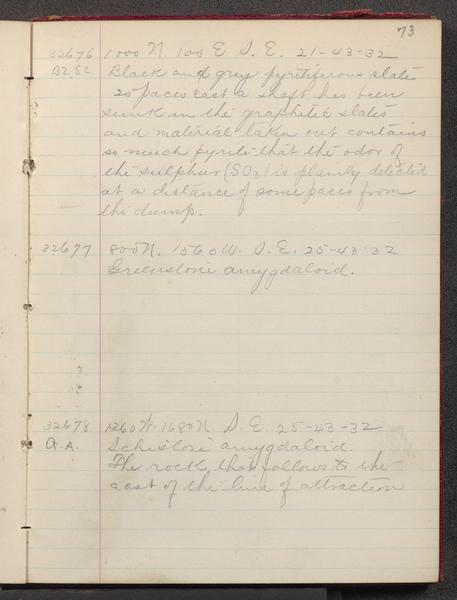 73
32676 1000 N. 100 E S. E. 21-43-32
B2, S2 Black and grey pyritiferous slates
25 paces east a shaft has been
sunk in the graphitic slates
and material taken out contains
so much pyrite that the odor of
the sulphur (SO2) is plainly detected
at a distance of some paces from
the dump.
32677 800 N. 1560 W. S. E. 25-43-32
Greenstone amygdaloid.
32678 1260 W. 1680 N. S. E. 25-43-32
A.A. Schistose amygdaloid.
The rock that follows to the
east of the line of attraction